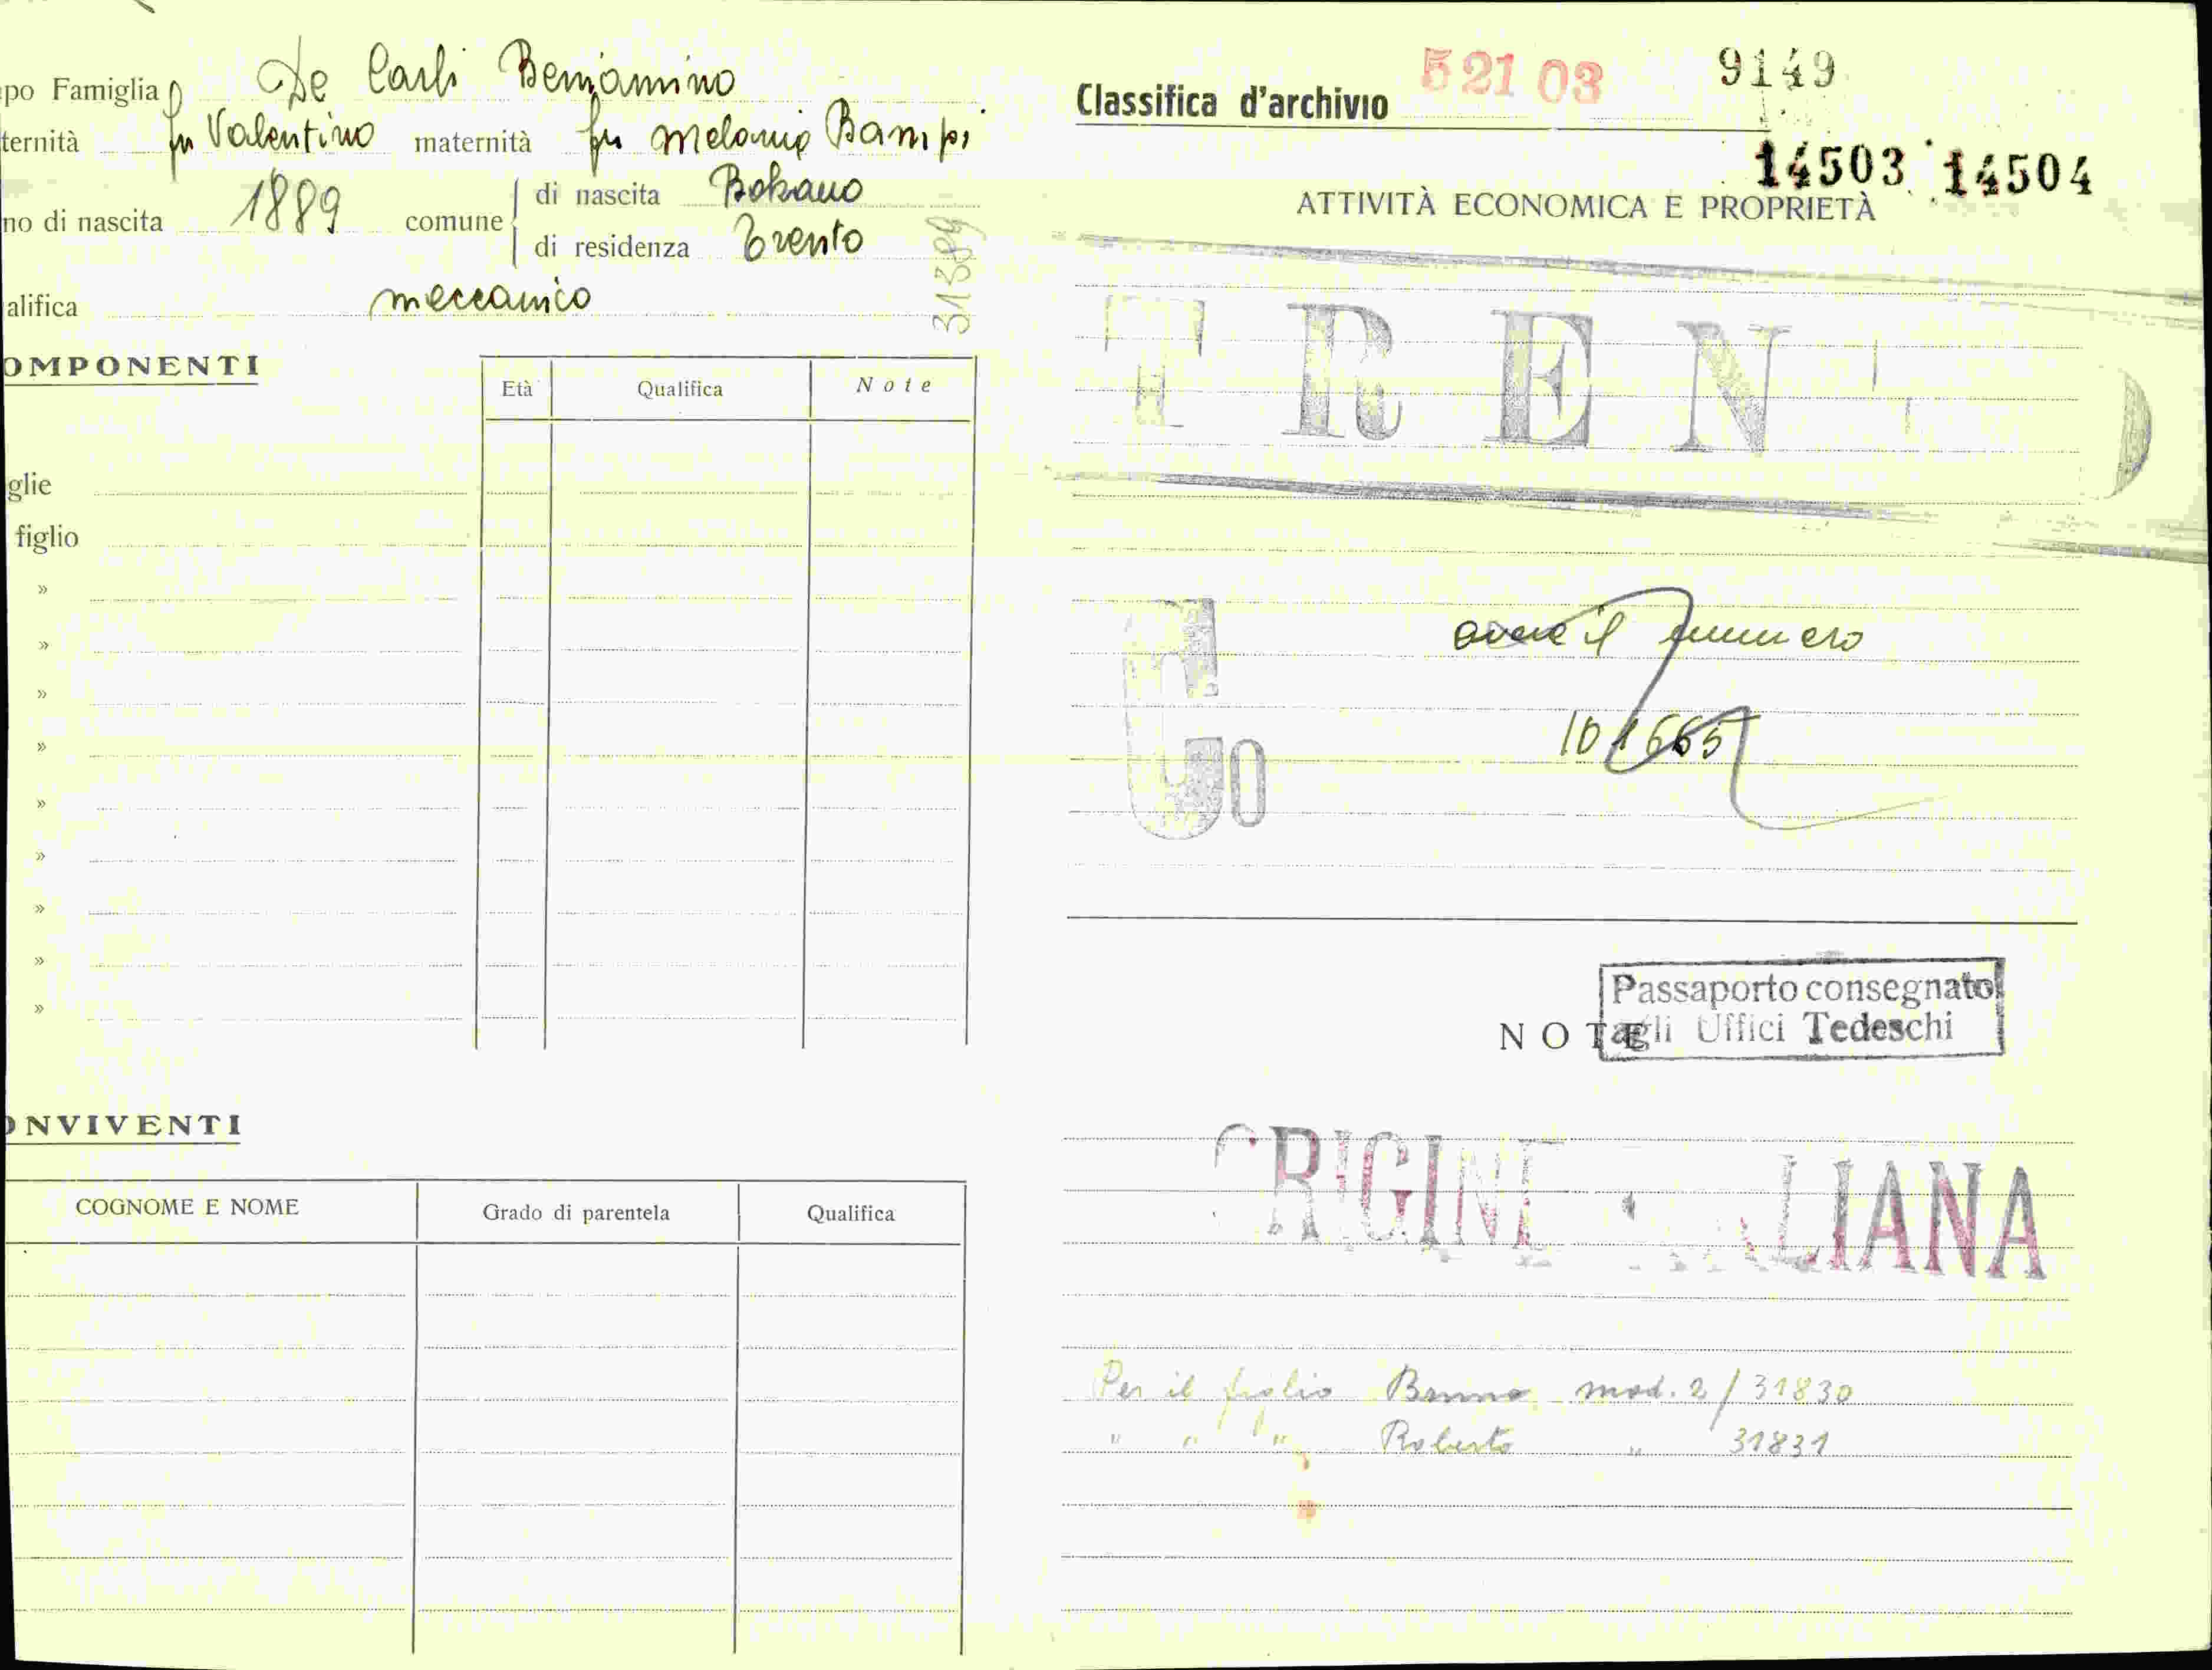 po Famiglia De Carli Beniamino
ternità fu Valentino maternità fu Melania Bampi
no di nascita 1889 comune di nascita Bolzano
di residenza Trento
alifica meccanico
31389
OMPONENTI
Età Qualifica Note
glie
figlio
»
»
»
»
»
»
»
»
»
ONVIVENTI
COGNOME E NOME Grado di parentela Qualifica
Classifica d'archivio 52103 9149
14503 14504
ATTIVITÀ ECONOMICA E PROPRIETÀ
TREN
G0
il numero
101665
Passaporto consegnato
agli Uffici Tedeschi
NOTE
ORIGINE ITALIANA
Per il figlio Bruno mod. 2/31830
" " " Roberto " 31831